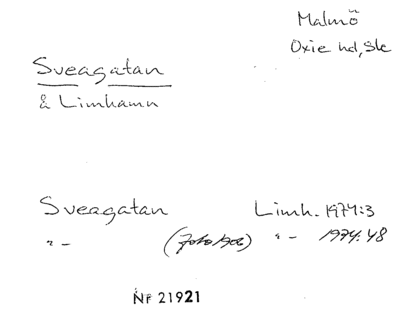 Malmö
Oxie hd, Sk
Sveagatan
å Limhamn
Sveagatan Limh. 1974:3
"– (foto 1906) "– 1974:48
NF 21921